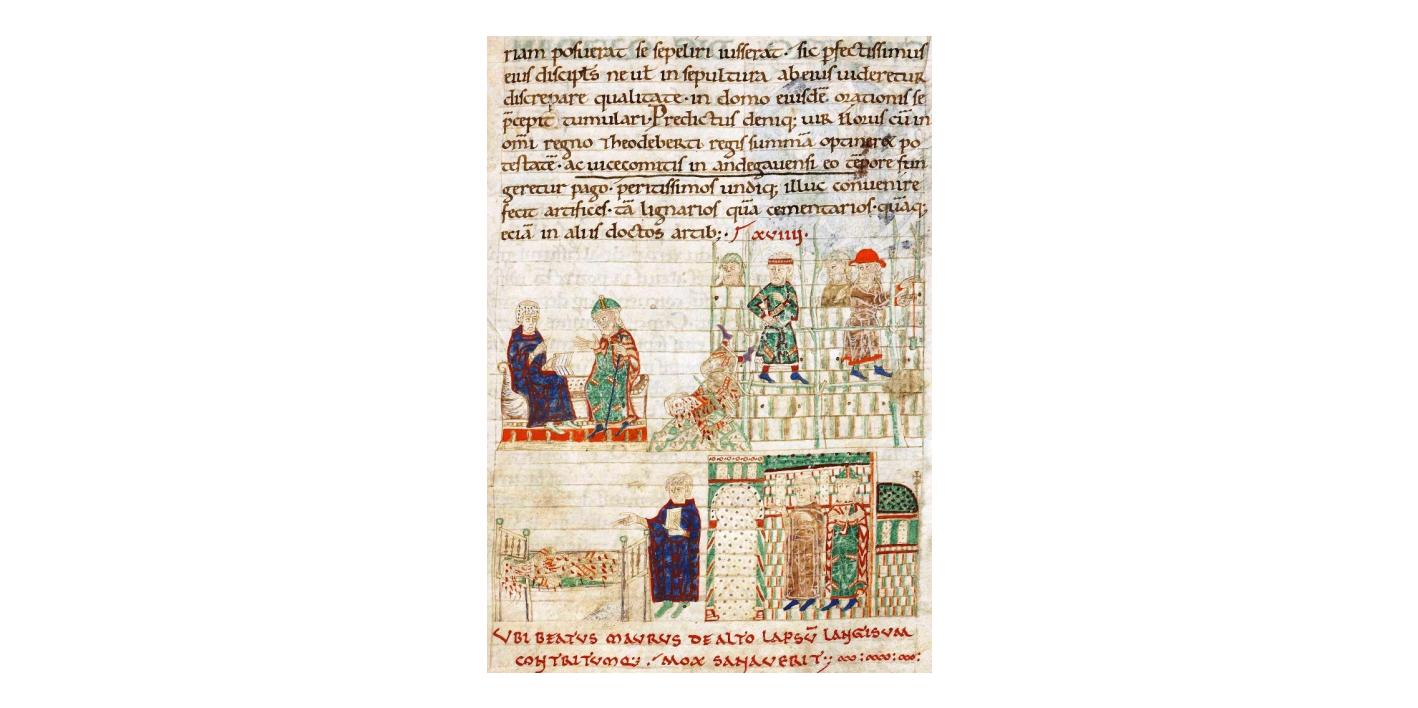 riam posuerat se sepeliri iusserat. sic pfectissimus
eius discipłs ne uł in sepultura ab eius uideretur
discrepare qualitate. in domo eiusdē orationis se
p̄cepit tumulari. Predictus deniq; uir Florus cū in
om̄i regno Theodeberti regis summā optineret po
testatē. ac uicecomitis in andegauensi eo tēpore fun
geretur pago. peritissimos undiq; illuc conuenire
fecit artifices. tā lignarios quā cementarios. quāq;
eciā in aliis doctos artib;. xviiii.
UBI BEATUS MAURUS DE ALTO LAPSŪ LANGISUM
CONTRITUMQ; . MOX SANAUERIT;